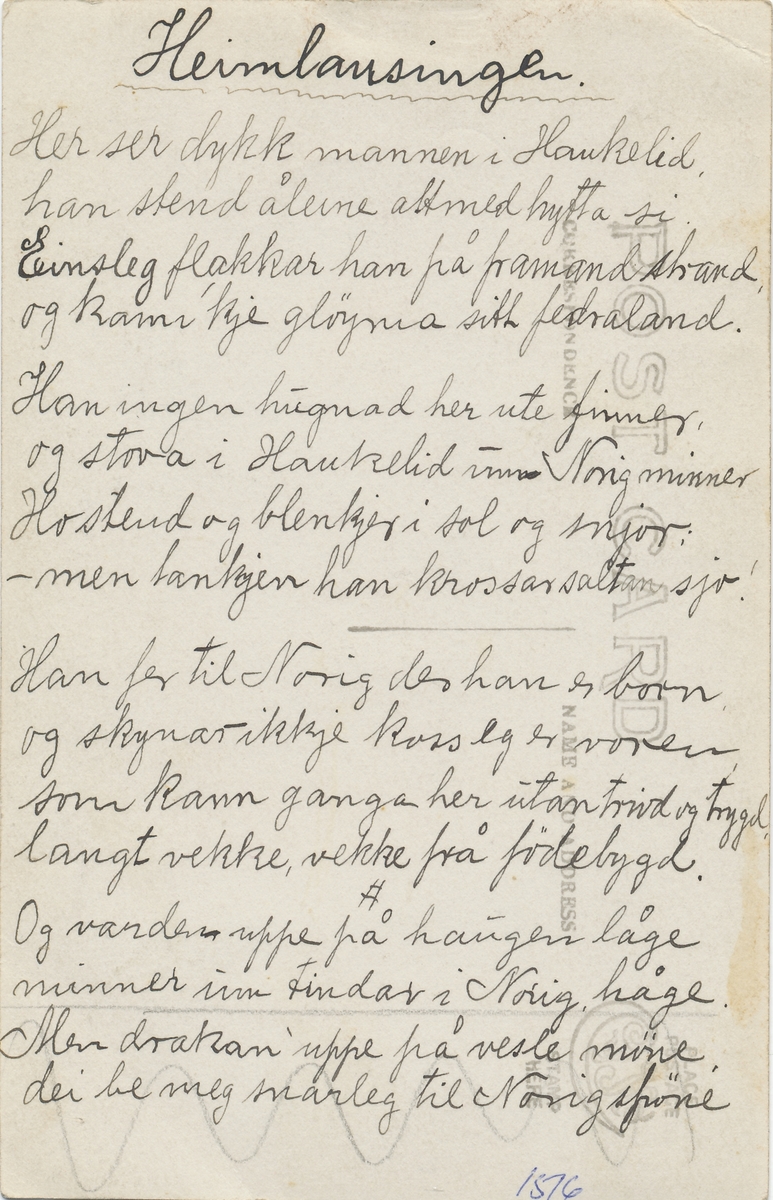 Heimlausingen.
Her ser dykk mannen i Haukelid,
han stend åleine attmed hytta si.
Einsleg flakkar han på framand strand,
og kann 'kje glöyma sitt fedraland.
Han ingen hugnad her ute finner,
og stova i Haukelid um Norig minner
Ho stend og blenkjer i sol og snjor:
– men tankjen han krossar saltan sjo!
Han fer til Norig der han er born,
og skynar ikkje koss eg er voren,
som kann ganga her utan trivd og trygd,
langt vekke, vekke frå födebygd.
Og varden uppe på haugen låge
minner um tindar i Norig, håge.
Men drakan' uppe på vesle möne,
dei be meg snarleg til Norig
POST CARD
CORRESPONDENCE
NAME AND ADDRESS
PLACE
STAMP
HERE
1576